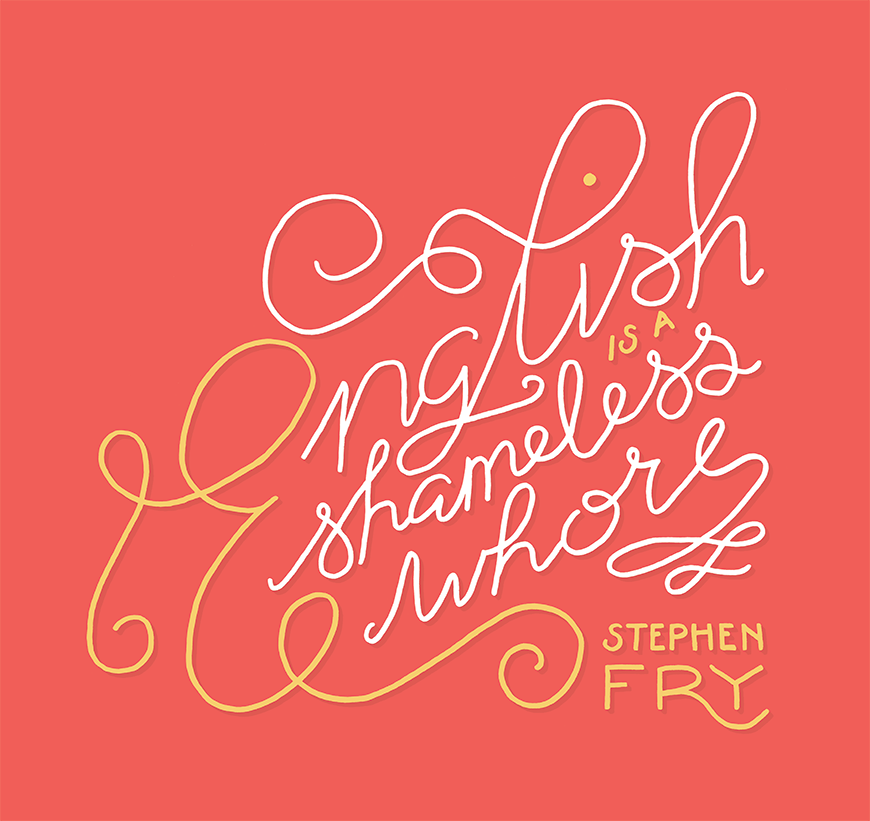 English
IS A
shameless
whore
STEPHEN
FRY